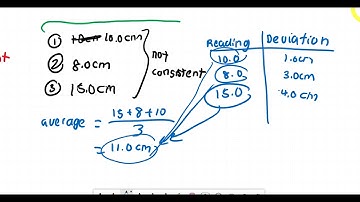 ① 10cm 10.0cm
② 8.0cm
③ 15.0cm
not
consistent
average = 15+8+10
3
= 11.0cm
Reading Deviation
10.0 1.0cm
8.0 3.0cm
15.0 4.0cm